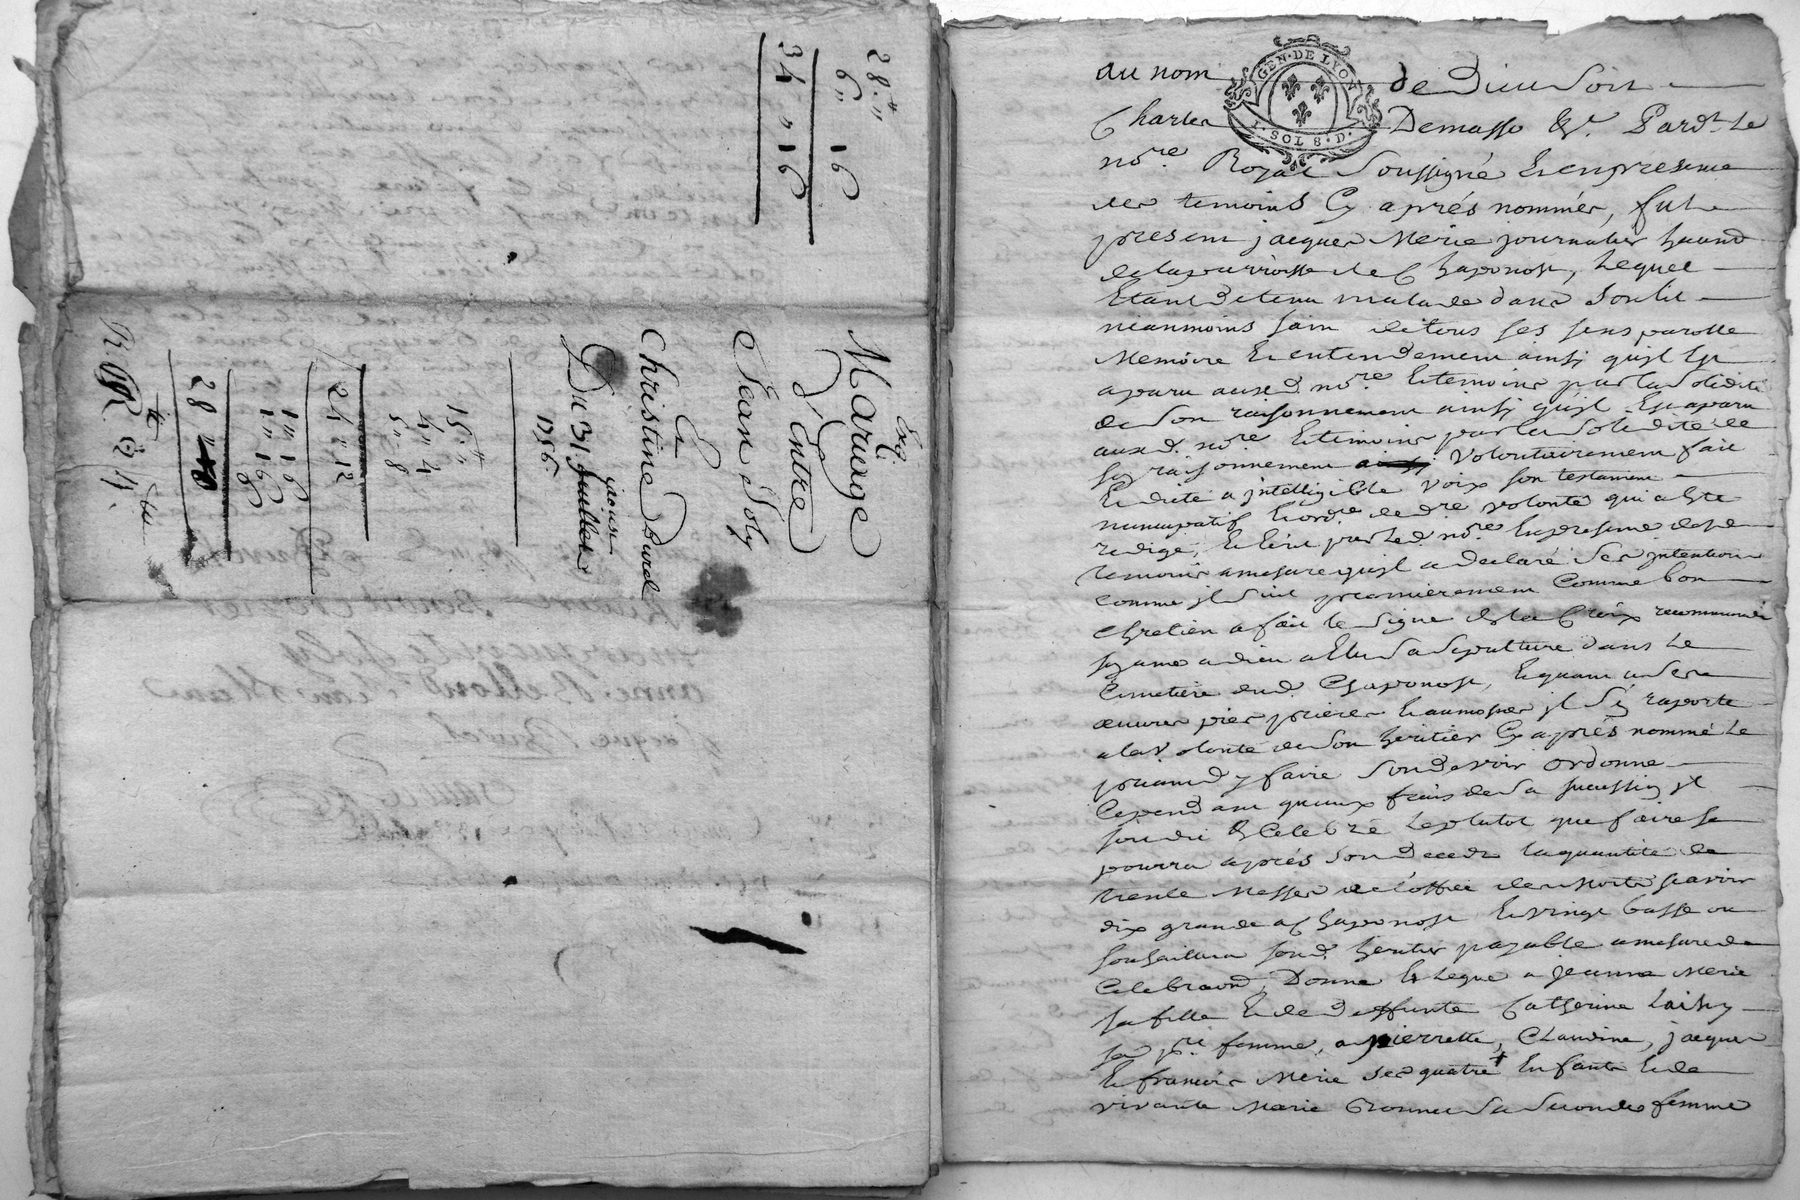 28 ₶
6 " 16
34 " 16
Exq.
Mariage
D'Entre
Jean Joly
Et
Christine Burel
epouse
Du 31 Juillet
1756
15 ₶
4 " 4
5 " 8
24 " 12
1 " 16
1 " 16
8
28
au nom de Dieu Soit
GEN · DE LYON
1 · SOL 8 · D ·
Charles Demasso &r. Pard.t Le
no.re Royal Soussigné Et en presence
des temoins Cy aprés nommés, fut
present jacques Merie journalier haband
de la parroisse de Chaponost, Lequel
Etant detenu malade dans Son lit
neanmoins sain de tous ses sens parolle
Memoire Et entendement ainsj qujl Est
aparu auxd. no.re Et temoins par la Solidité
de Son raisonnement ainsj qujl Est aparu
auxd. no.re Et temoins par la Solidité de
Sa raisonnement Volontairement fait
Et dicté a jntelligible voix son testament
nuncupatif Et ord.re de d.re volonté qui a Eté
redigé, Et Ecrit par led. no.re En presence desd.
temoins a mesure qujl a declaré Ses jntentions
comme jl Suit premierement Comme bon
Chretien a fait le Signe de la Croix recommandé
son ame a dieu a Elu Sa Sepulture dans Le
Cimetiere dud. Chaponost, Et quant a Ses
œuvres pies prieres Et aumosnes jl S'en raporte
a la volonté de Son heritier Cy aprés nommé Le
priant d'y faire Son devoir ordonne
Cependant qu'aux frais de Sa succession jl
soit dit Et Celebré Le plutot que faire se
pourra aprés Son Decedz la quantité de
trente Messes de l'office des Morts scavoir
dix grande a Chaponost Et vingt basse ou
souhaittera sond. heritier payable a mesure de
Celebraond, Donne Et Legue a jeanne Merie
sa fille Et de Deffunte Catherine
sa p.re femme, a pierrette, Claudine, jacques
Et francois Merie Ses quatre + Enfants Et de
vivante Marie Bronne Sa Seconde femme